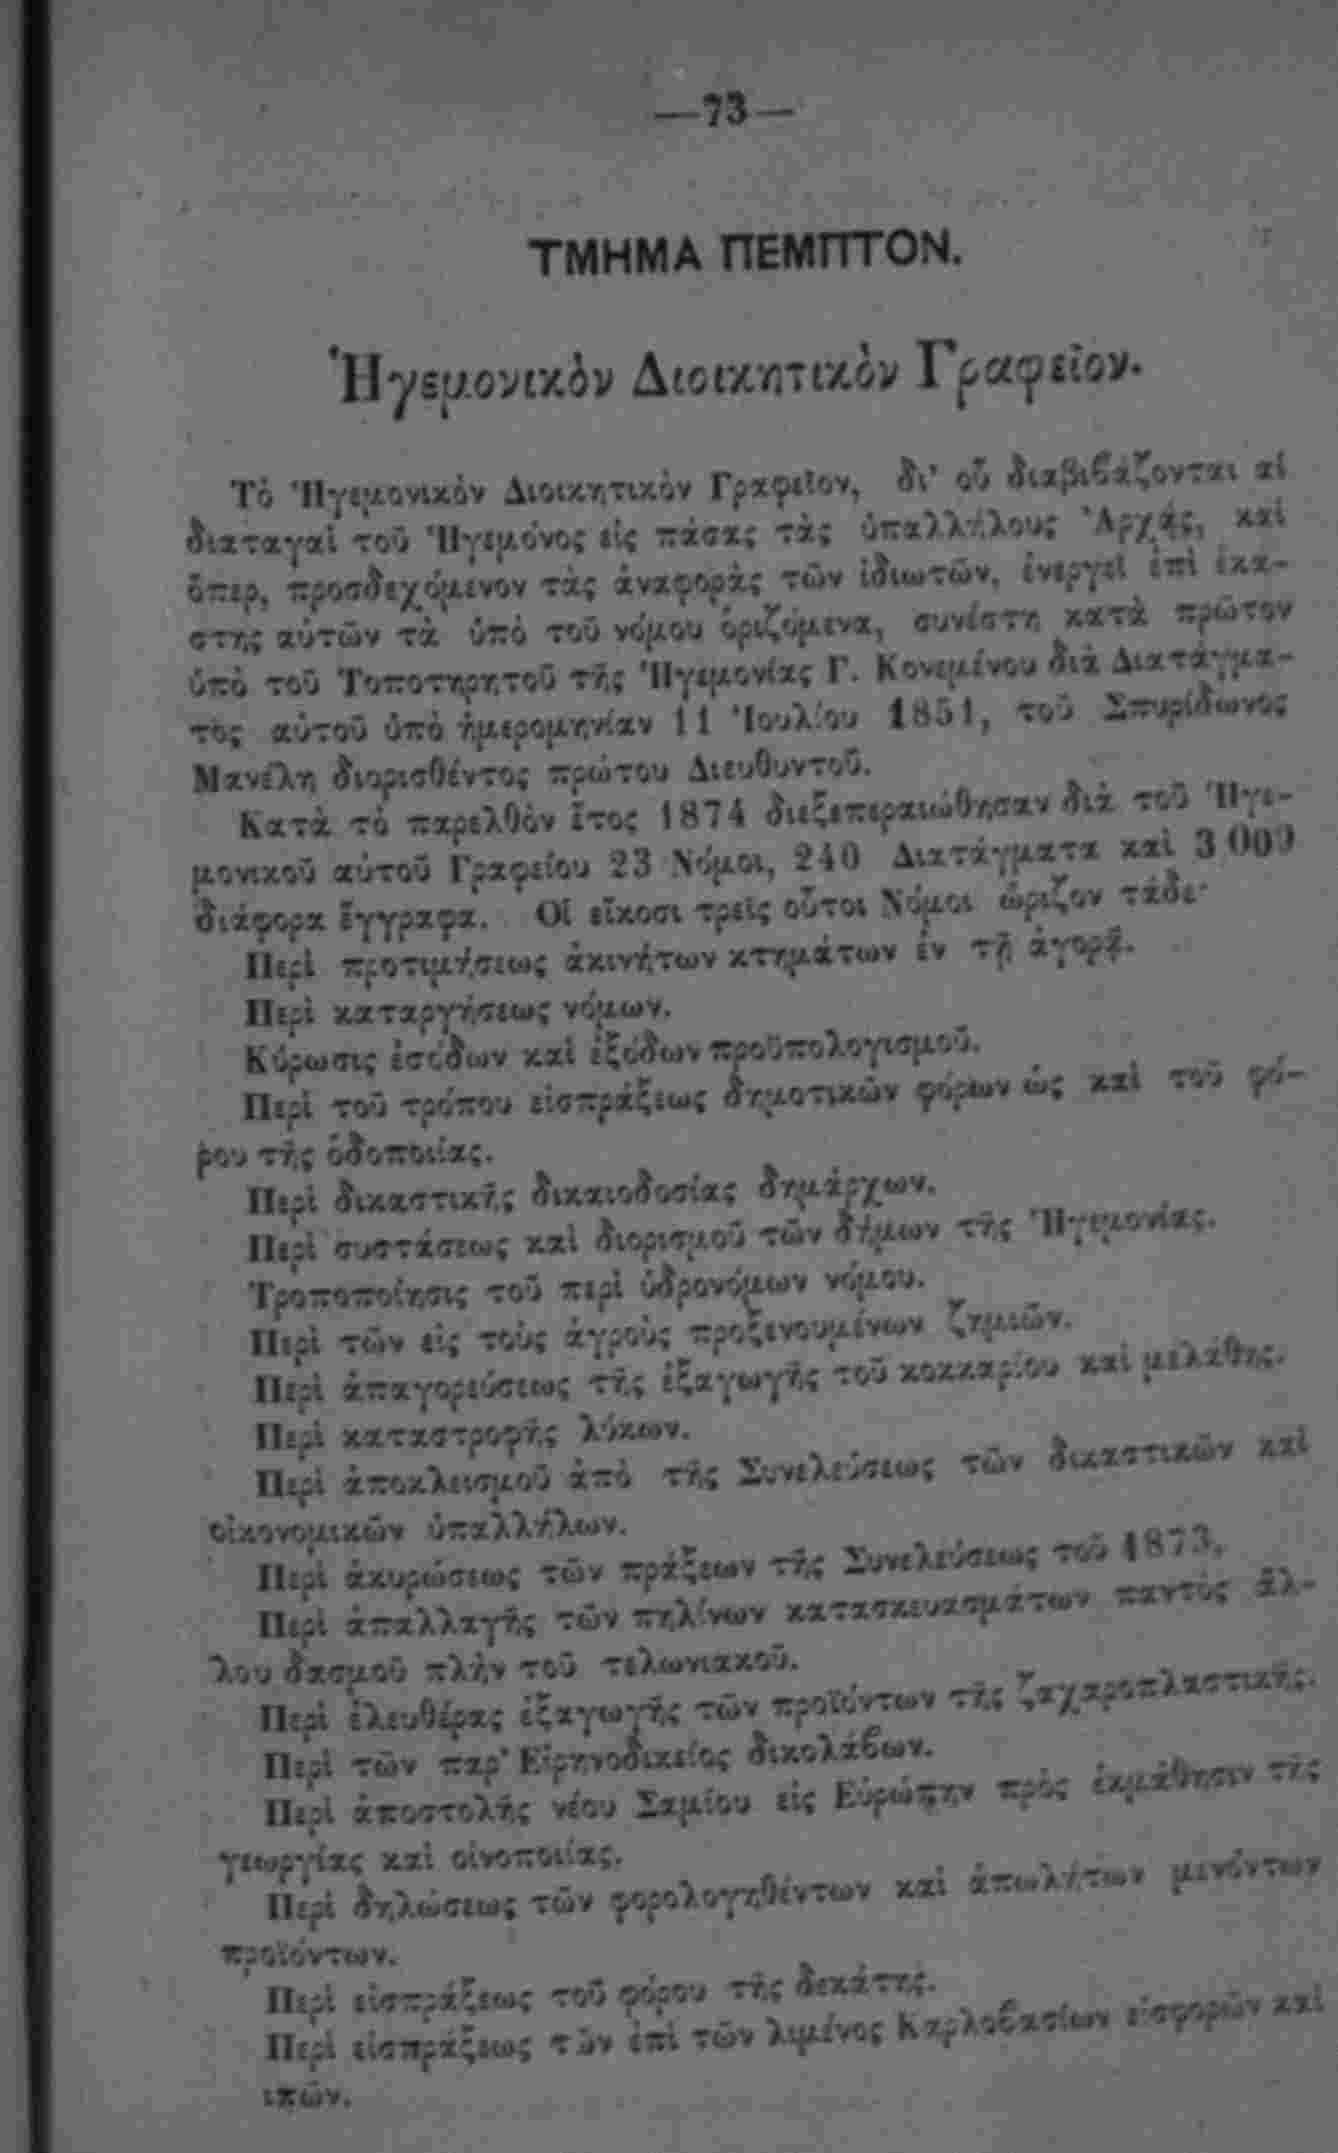 —73—
ΤΜΗΜΑ ΠΕΜΠΤΟΝ.
Ἡγεμονικὸν Διοικητικὸν Γραφεῖον.
Τὸ Ἡγεμονικὸν Διοικητικὸν Γραφεῖον, δι' οὗ διαβιϐάζονται αἱ
διαταγαὶ τοῦ Ἡγεμόνος εἰς πάσας τὰς ὑπαλλήλους Ἀρχάς, καὶ
ὅπερ, προσδεχόμενον τὰς ἀναφορὰς τῶν ἰδιωτῶν, ἐνεργεῖ ἐπὶ ἑκά-
στης αὐτῶν τὰ ὑπὸ τοῦ νόμου ὁριζόμενα, συνέστη κατὰ πρῶτον
ὑπὸ τοῦ Τοποτηρητοῦ τῆς Ἡγεμονίας Γ. Κονεμένου διὰ Διατάγμα-
τος αὐτοῦ ὑπὸ ἡμερομηνίαν 11 Ἰουλίου 1851, τοῦ Σπυρίδωνος
Μανέλη διορισθέντος πρώτου Διευθυντοῦ.
Κατὰ τὸ παρελθὸν ἔτος 1874 διεξεπεραιώθησαν διὰ τοῦ Ἡγε-
μονικοῦ αὐτοῦ Γραφείου 23 Νόμοι, 240 Διατάγματα καὶ 3,000
διάφορα ἔγγραφα. Οἱ εἴκοσι τρεῖς οὗτοι Νόμοι ὥριζον τάδε·
Περὶ προτιμήσεως ἀκινήτων κτημάτων ἐν τῇ ἀγορᾷ.
Περὶ καταργήσεως νόμων.
Κύρωσις ἐσόδων καὶ ἐξόδων προϋπολογισμοῦ.
Περὶ τοῦ τρόπου εἰσπράξεως δημοτικῶν φόρων ὡς καὶ τοῦ φό-
ρου τῆς ὁδοποιίας.
Περὶ δικαστικῆς δικαιοδοσίας δημάρχων.
Περὶ συστάσεως καὶ διορισμοῦ τῶν δήμων τῆς Ἡγεμονίας.
Τροποποίησις τοῦ περὶ ὑδρονόμων νόμου.
Περὶ τῶν εἰς τοὺς ἀγροὺς προξενουμένων ζημιῶν.
Περὶ ἀπαγορεύσεως τῆς ἐξαγωγῆς τοῦ κοκκαρίου καὶ μελάθης.
Περὶ καταστροφῆς λύκων.
Περὶ ἀποκλεισμοῦ ἀπὸ τῆς Συνελεύσεως τῶν δικαστικῶν καὶ
οἰκονομικῶν ὑπαλλήλων.
Περὶ ἀκυρώσεως τῶν πράξεων τῆς Συνελεύσεως τοῦ 1873.
Περὶ ἀπαλλαγῆς τῶν πηλίνων κατασκευασμάτων παντὸς ἄλ-
λου δασμοῦ πλὴν τοῦ τελωνιακοῦ.
Περὶ ἐλευθέρας ἐξαγωγῆς τῶν προϊόντων τῆς ζαχαροπλαστικῆς.
Περὶ τῶν παρ' Εἰρηνοδικείοις δικολάϐων.
Περὶ ἀποστολῆς νέου Σαμίου εἰς Εὐρώπην πρὸς ἐκμάθησιν τῆς
γεωργίας καὶ οἰνοποιίας.
Περὶ δηλώσεως τῶν φορολογηθέντων καὶ ἀπωλήτων μενόντων
προϊόντων.
Περὶ εἰσπράξεως τοῦ φόρου τῆς δεκάτης.
Περὶ εἰσπράξεως τῶν ἐπὶ τῶν λιμένος Καρλοϐασίων εἰσφορῶν καὶ